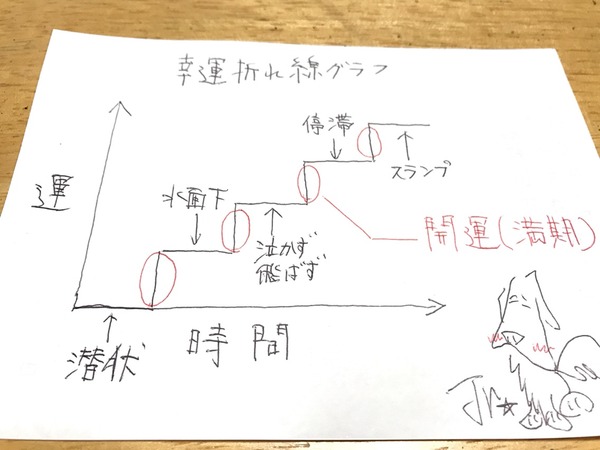 幸運折れ線グラフ
停滞
スランプ
運
水面下
泣かず
飛ばず
開運(満期)
潜伏
時間
Jr☆